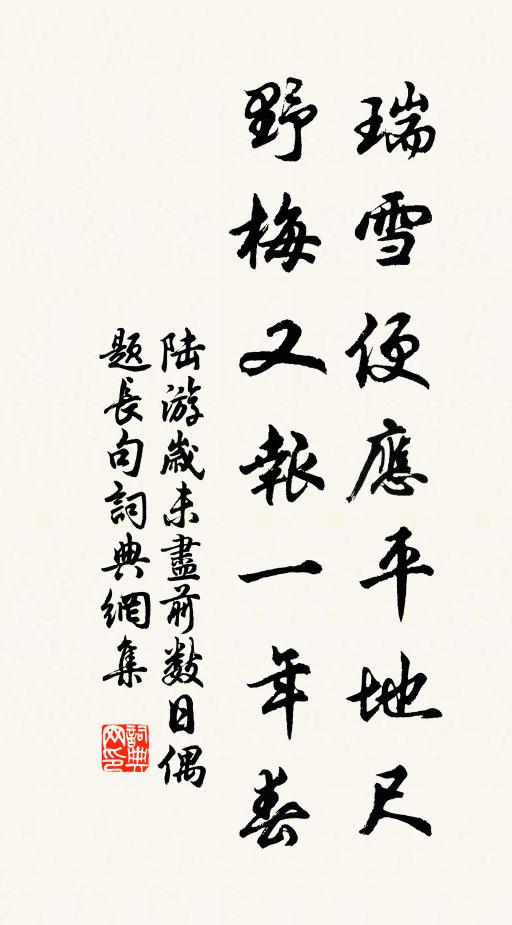 瑞雪便應平地尺
野梅又報一年春
陸游歲未盡前数日偶
題長句詞典網集
詞典网印